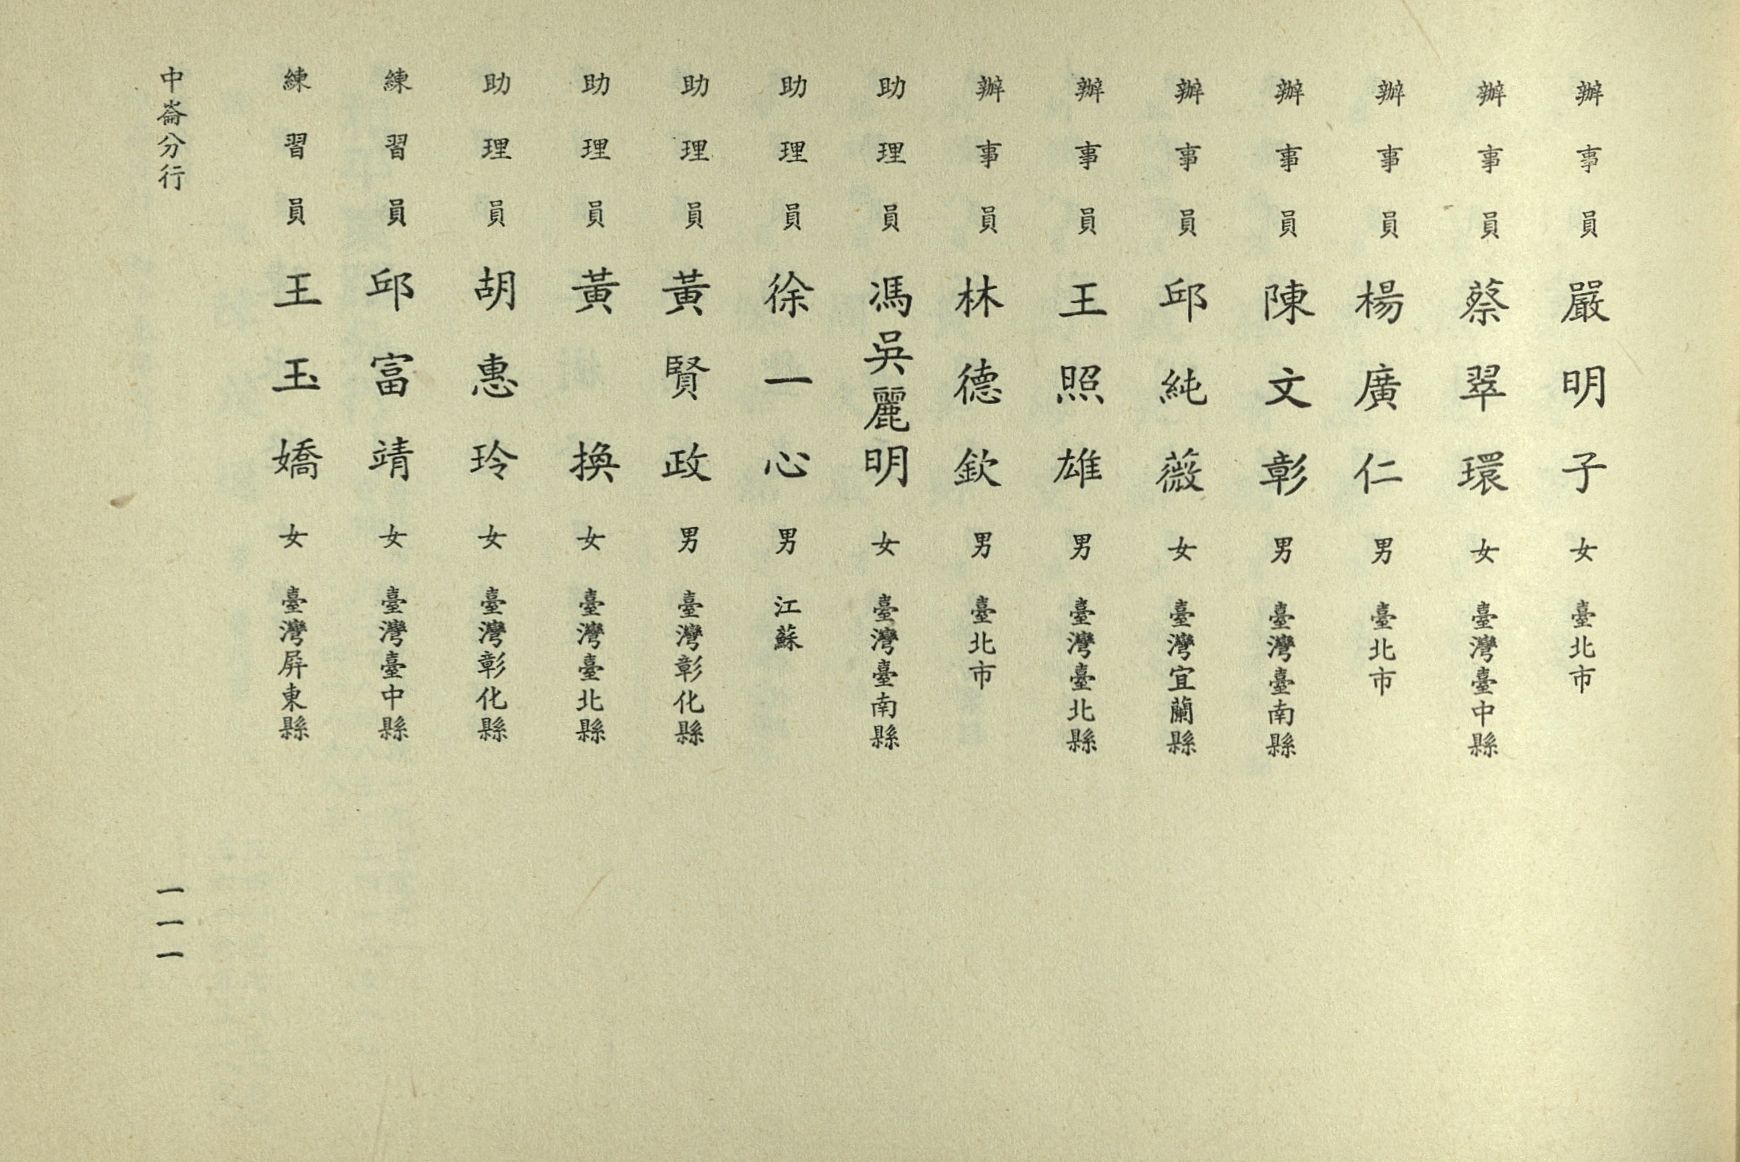 辦事員 嚴明子 女 臺北市
辦事員 蔡翠環 女 臺灣臺中縣
辦事員 楊廣仁 男 臺北市
辦事員 陳文彰 男 臺灣臺南縣
辦事員 邱純薇 女 臺灣宜蘭縣
辦事員 王照雄 男 臺灣臺北縣
辦事員 林德欽 男 臺北市
助理員 馮吳麗明 女 臺灣臺南縣
助理員 徐一心 男 江蘇
助理員 黃賢政 男 臺灣彰化縣
助理員 黃換 女 臺灣臺北縣
助理員 胡惠玲 女 臺灣彰化縣
練習員 邱富靖 女 臺灣臺中縣
練習員 王玉嬌 女 臺灣屏東縣
中崙分行 一一一